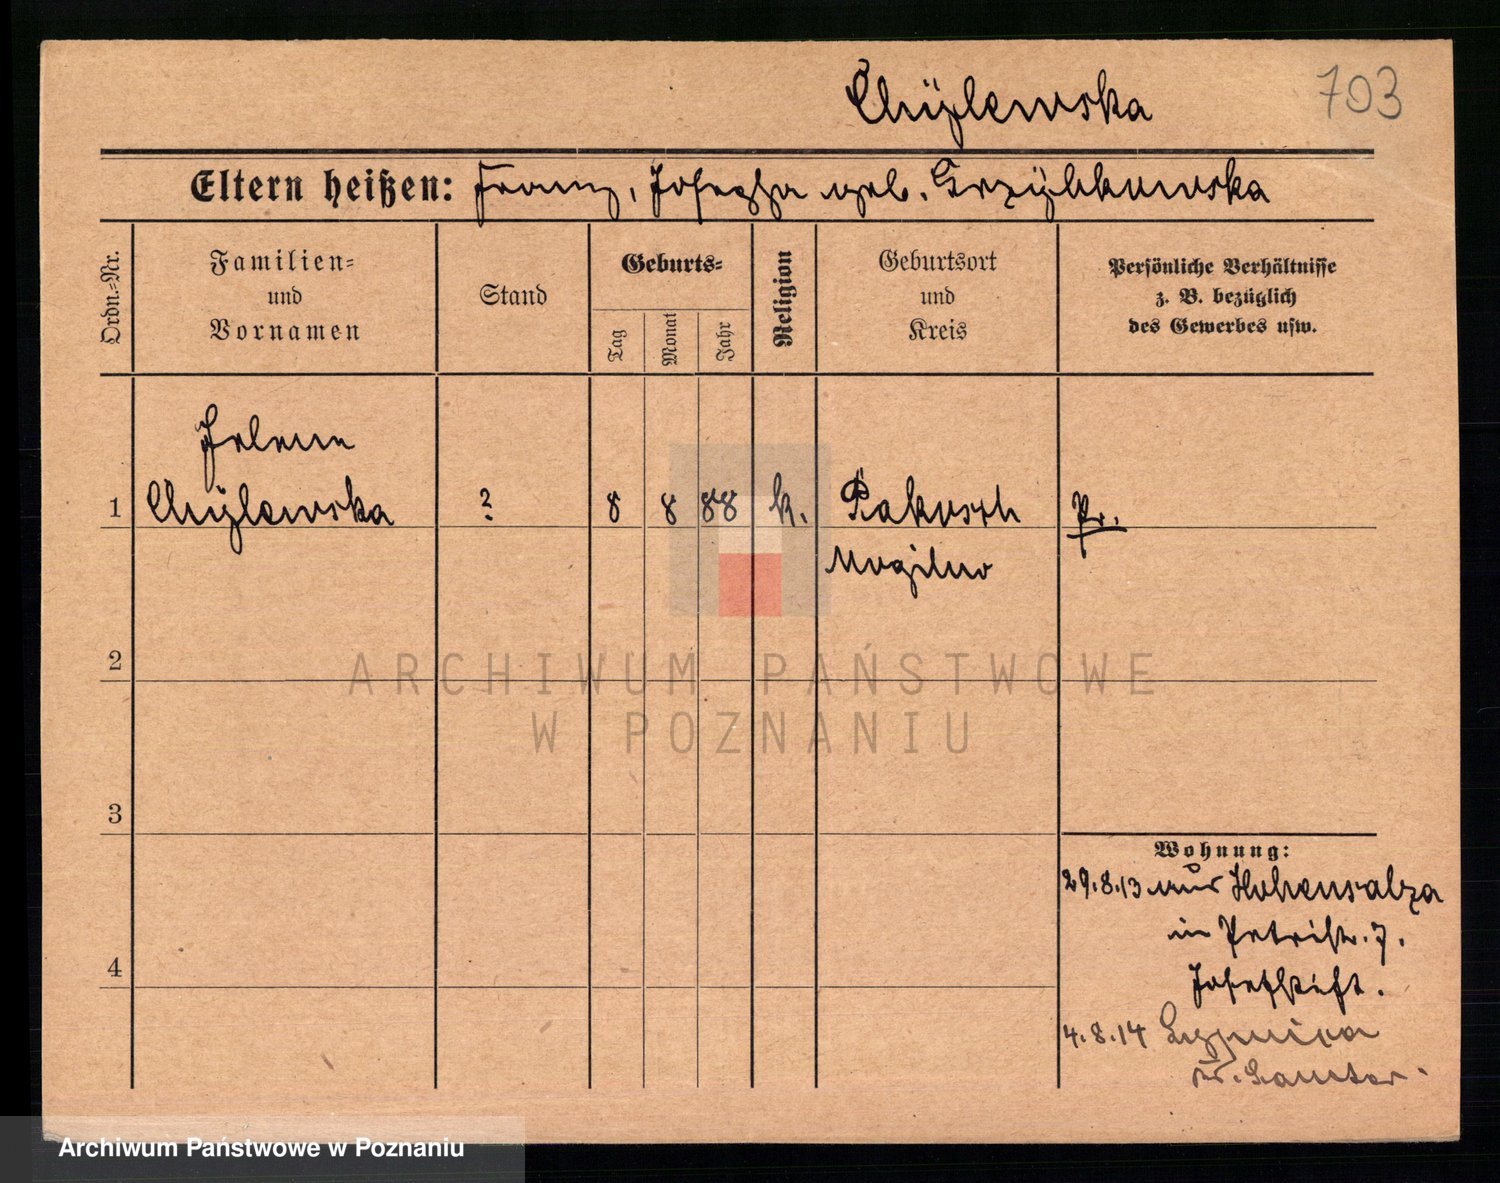 Chÿzlewska 703
Eltern heißen: Franz, Josepha geb. Grzÿbkowska
Ordn.-Nr.
Familien-
und
Vornamen
Stand
Geburts-
Tag
Monat
Jahr
Religion
Geburtsort
und
Kreis
Persönliche Verhältnisse
z. B. bezüglich
des Gewerbes usw.
Helena
1 Chÿzlewska ? 8 8 88 k. Pakosch Pr.
Mogilno
ARCHIWUM PAŃSTWOWE
W POZNANIU
2
3
4
Wohnung:
29.8.13 aus Hohensalza
in Petristr. 7.
Josephstift.
4.8.14
Kr. Samter.
Archiwum Państwowe w Poznaniu